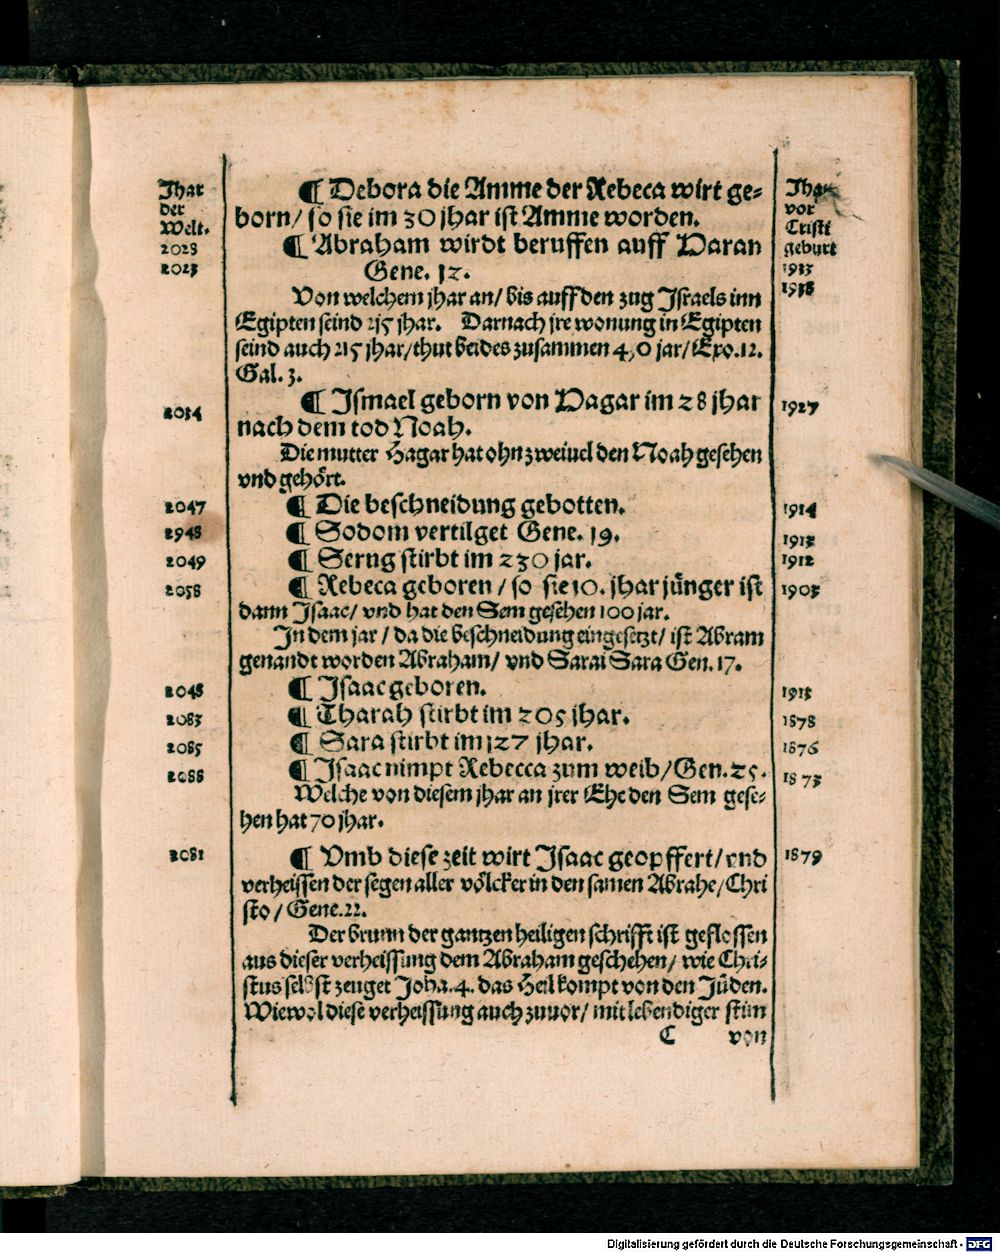 Jhar
der
Welt.
2028
2023
Jhar
vor
Cristi
geburt
1933
1938
¶ Debora die Amme der Rebeca wirt ge-
born/ so sie im 30 jhar ist Amme worden.
¶ Abraham wirdt beruffen auff Haran
Gene. 12.
Von welchem jhar an/ bis auff den zug Jsraels inn
Egipten seind 215 jhar. Darnach jre wonung in Egipten
seind auch 215 jhar/ thut beides zusammen 430 jar/ Exo. 12.
Gal. 3.
2034 ¶ Jsmael geborn von Hagar im 28 jhar 1927
nach dem tod Noah.
Die mutter Hagar hat ohn zweiuel den Noah gesehen
vnd gehört.
2047 ¶ Die beschneidung gebotten. 1914
2948 ¶ Sodom vertilget Gene. 19. 1913
2049 ¶ Serng stirbt im 230 jar. 1912
2058 ¶ Rebeca geboren/ so sie 10. jhar jünger ist 1903
dann Jsaac/ vnd hat den Sem gesehen 100 jar.
Jn dem jar/ da die beschneidung eingesetzt/ ist Abram
genandt worden Abraham/ vnd Sarai Sara Gen. 17.
2048 ¶ Jsaac geboren. 1913
2083 ¶ Tharah stirbt im 205 jhar. 1878
2085 ¶ Sara stirbt im 127 jhar. 1876
2088 ¶ Jsaac nimpt Rebecca zum weib/ Gen. 25. 1873
Welche von diesem jhar an jrer Ehe den Sem gese-
hen hat 70 jhar.
2081 ¶ Vmb diese zeit wirt Jsaac geopffert/ vnd 1879
verheissen der segen aller völcker in den samen Abrahe/ Chri
sto/ Gene. 22.
Der brunn der gantzen heiligen schrifft ist geflossen
aus dieser verheissung dem Abraham geschehen/ wie Chri-
stus selbst zeuget Joha. 4. das Heil kompt von den Jüden.
Wiewol diese verheissung auch zuuor/ mit lebendiger stim
C von
Digitalisierung gefördert durch die Deutsche Forschungsgemeinschaft - DFG